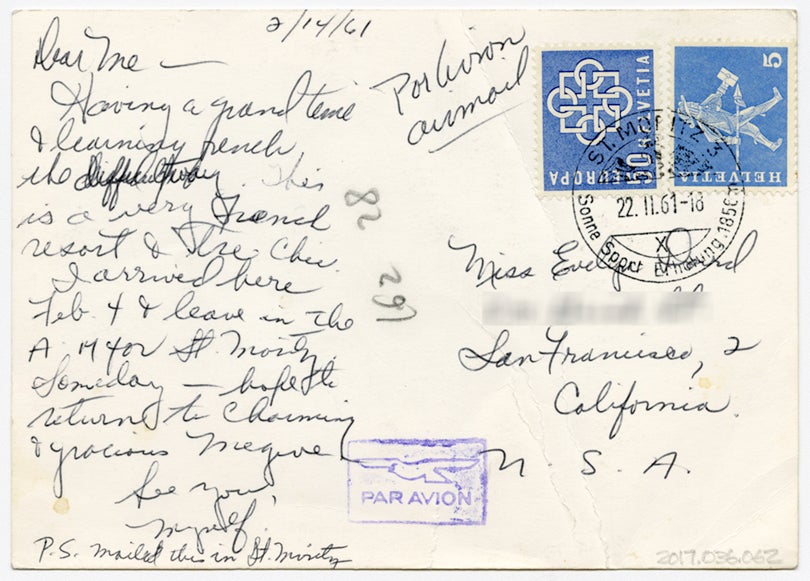 2/14/61
Dear Me —
Having a grand time
& learning french
the difficult way. This
is a very French
resort & Tre Chic.
I arrived here
Feb. 4 & leave in the
A.M for St. Moritz.
Someday — hope to
return to Charming
& gracious Megive
See you,
Myself.
P.S. Mailed this in St. Moritz
Por Avion
airmail
28
162
EUROPA
50 HELVETIA
HELVETIA
5
ST. MORITZ 3
22.11.61-18
Sonne Sport Erholung 1856m
Miss
San Francisco, 2
California.
U. S. A.
PAR AVION
2017.036.062